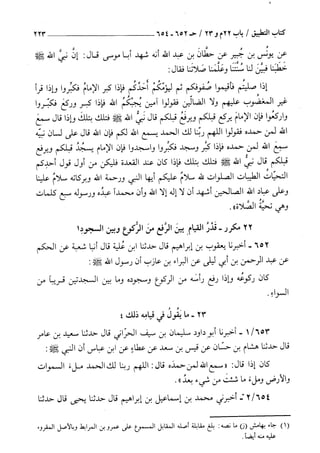 كتاب التطبيق / باب ٢٢ و ٢٣ / حـ ٦٥٢ - ٦٥٤ ٢٢٣
عن يونس بن جبير عن حطان بن عبد الله أنه شهد أبا موسى قال: إن نبي الله ﷺ
خطبنا فبين لنا سنتنا وعلمنا صلاتنا فقال:
إذا صليتم فأقيموا صفوفكم ثم ليؤمكم أحدكم فإذا كبر الإمام فكبروا وإذا قرأ
غير المغضوب عليهم ولا الضالين فقولوا آمين يجبكم الله فإذا كبر وركع فكبروا
واركعوا فإن الإمام يركع قبلكم ويرفع قبلكم قال نبي الله ﷺ فتلك بتلك وإذا قال سمع
الله لمن حمده فقولوا اللهم ربنا لك الحمد يسمع الله لكم فإن الله قال على لسان نبيه
سمع الله لمن حمده فإذا كبر وسجد فكبروا واسجدوا فإن الإمام يسجد قبلكم ويرفع
قبلكم قال نبي الله ﷺ فتلك بتلك فإذا كان عند القعدة فليكن من أول قول أحدكم
التحيات الطيبات الصلوات لله سلام عليكم أيها النبي ورحمة الله وبركاته سلام علينا
وعلى عباد الله الصالحين أشهد أن لا إله إلا الله وأن محمداً عبده ورسوله سبع كلمات
وهي تحية الصلاة».
٢٢ مكرر - قدر القيام بين الرفع من الركوع وبين السجود؟
٦٥٢ - أخبرنا يعقوب بن إبراهيم قال حدثنا ابن علية قال أنبا شعبة عن الحكم
عن عبد الرحمن بن أبي ليلى عن البراء بن عازب أن رسول الله ﷺ:
كان ركوعه وإذا رفع رأسه من الركوع وسجوده وما بين السجدتين قريباً من
السواء.
٢٣ - ما يقول في قيامه ذلك ؟
١/٦٥٣ - أخبرنا أبو داود سليمان بن سيف الحراني قال حدثنا سعيد بن عامر
قال حدثنا هشام بن حسان عن قيس بن سعد عن عطاء عن ابن عباس أن النبي ﷺ:
كان إذا قال: «سمع الله لمن حمده قال: اللهم ربنا لك الحمد ملء السموات
والأرض وملء ما شئت من شيء بعد».
٢/٦٥٤ - أخبرني محمد بن إسماعيل بن إبراهيم قال حدثنا يحيى قال حدثنا
(١) جاء بهامش (ز) ما نصه: بلغ مقابلة أصله المقابل المسموع على عمرو بن المرابط وبالأصل المقروء
عليه منه أيضاً.